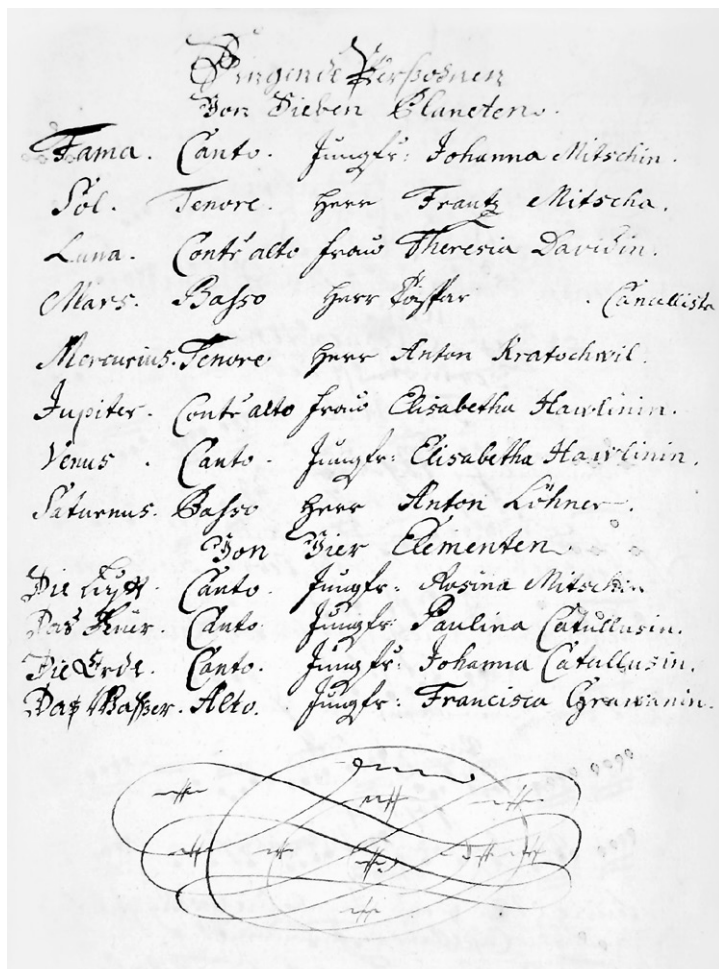 Singende Persohnen
Von Sieben Planeten.
Fama. Canto. Jungfr: Johanna Mitschin.
Sol. Tenore. Herr Frantz Mitscha.
Luna. Contr'alto Frau Theresia Davidin.
Mars. Basso Herr Cancellista
Mercurius. Tenore. Herr Anton Kratochwil.
Jupiter. Contr'alto Frau Elisabetha Hawlinin.
Venus. Canto. Jungfr: Elisabetha Hawlinin.
Saturnus. Basso Herr Anton Löhner.
Von Vier Elementen
Die Lufft. Canto. Jungfr: Rosina Mitschin
Das Feuer. Canto. Jungfr: Paulina Catullusin.
Die Erde. Canto. Jungfr: Johanna Catullusin.
Daß Wasser. Alto. Jungfr: Francisca